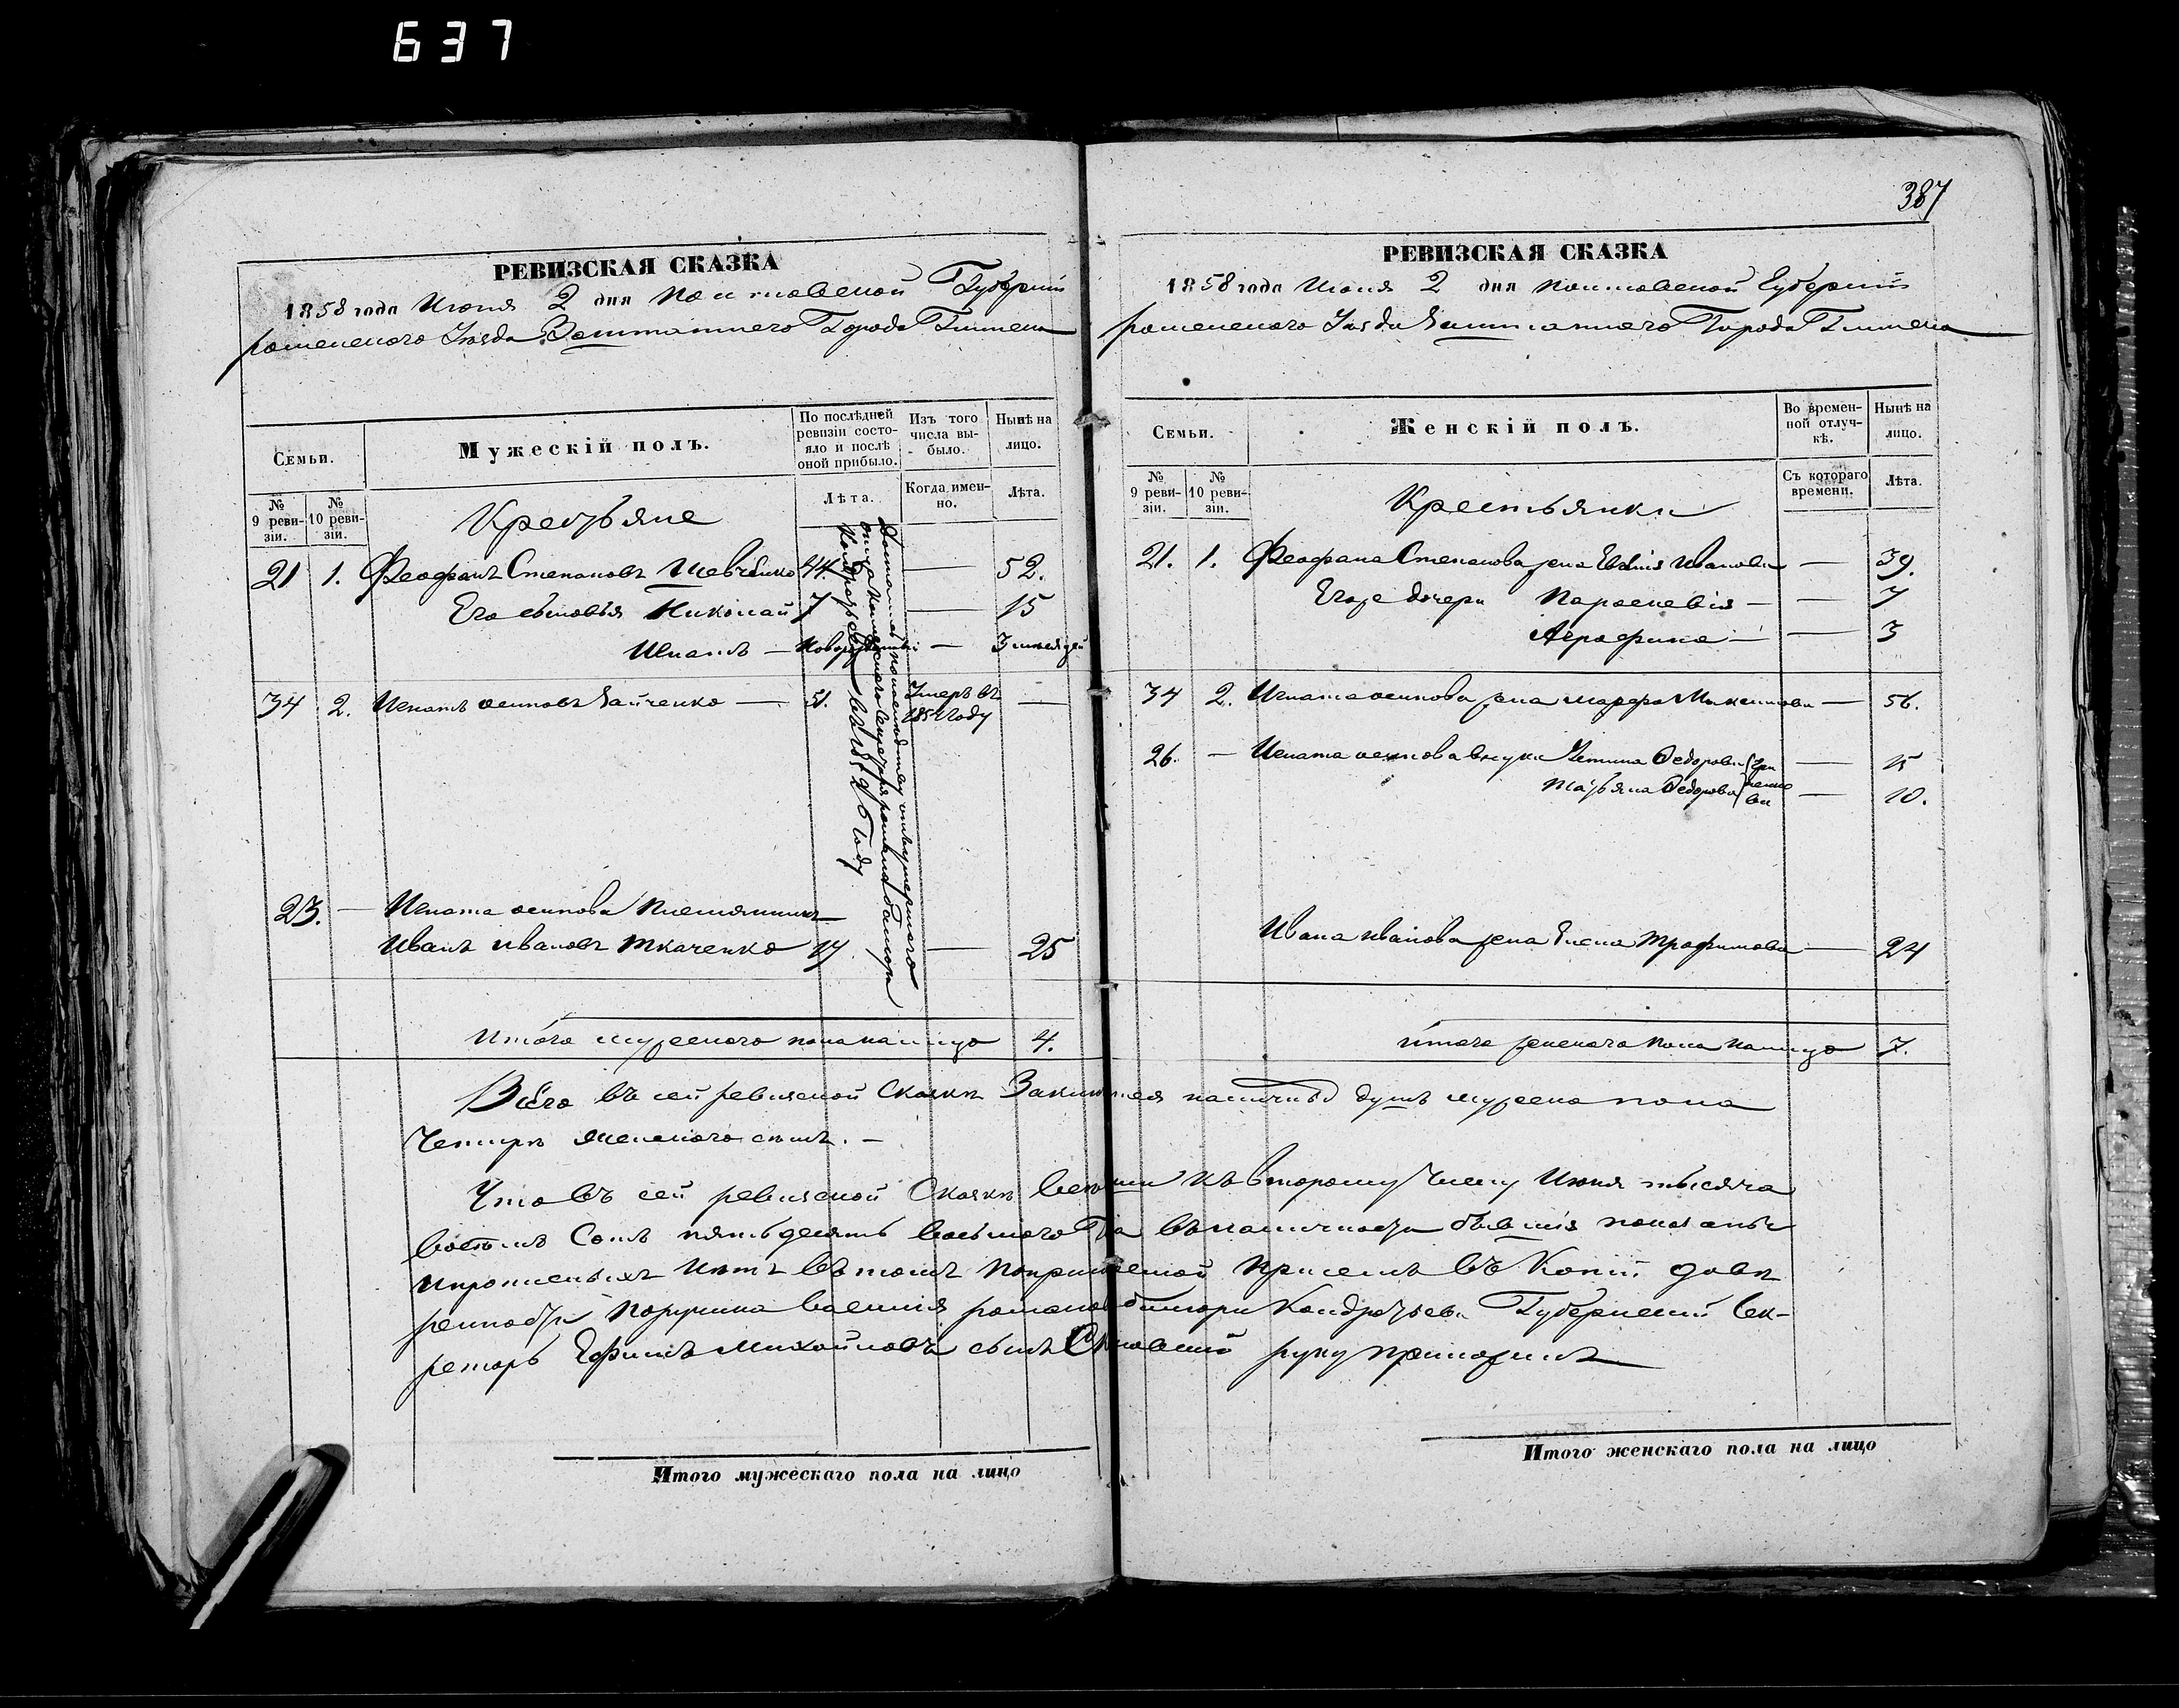 637
387
РЕВИЗСКАЯ СКАЗКА
1858 года Июня 2 дня Полтавской Губерніи
роменского Уезда Заштатного Города Глинска
Семьи.
Мужескій полъ.
По послѣдней ревизіи состояло и послѣ оной прибыло.
Изъ того числа выбыло.
Нынѣ на лицо.
№ 9 ревизіи.
№ 10 ревизіи.
Лѣта.
Когда именно.
Лѣта.
Крестьяне
21 1. Феофанъ Степановъ Шевченко 44. — 52.
Его сыновья Николай 7 — 15
Игнатъ — Новорожденный —
34 2. Игнатъ осиповъ Зайченко — 51. Умеръ въ году —
23. — Игната осипова племянникъ
Иванъ ивановъ Ткаченко 17 — 25
Итого мужеского пола налицо 4.
РЕВИЗСКАЯ СКАЗКА
1858 года Июня 2 дня Полтавской Губерніи
роменского Уезда Заштатного Города Глинска
Семьи.
Женскій полъ.
Во временной отлучкѣ.
Нынѣ на лицо.
№ 9 ревизіи.
№ 10 ревизіи.
Съ котораго времени.
Лѣта.
Крестьянки
21. 1. Феофана Степанова жена Иванова — 39.
Егоже дочери Параскевія — — 7
Аграфина — — 3
34 2. Игната осипова жена марфа Максимова — 56.
26. — Игната осипова внуки Устина Федорова — 15
Татьяна Федорова — 10.
Ивана иванова жена Елена Трофимова — 24
итого женского пола налицо 7.
Всего въ сей ревизской Сказки Заключается наличных душъ мужеска пола
Четыри женского семъ. —
Что въ сей ревизской Сказки все къ второму числу Июня тысяча
восемъ Сотъ пятьдесятъ восьмого Года въ наличности бывшія показаны
и прописныхъ нѣтъ въ томъ
Поручика василія романова Кондратьева Губернский Сек-
ретарь Ефимъ Михайловъ сынъ руку приложилъ
Итого мужескаго пола на лицо
Итого женскаго пола на лицо